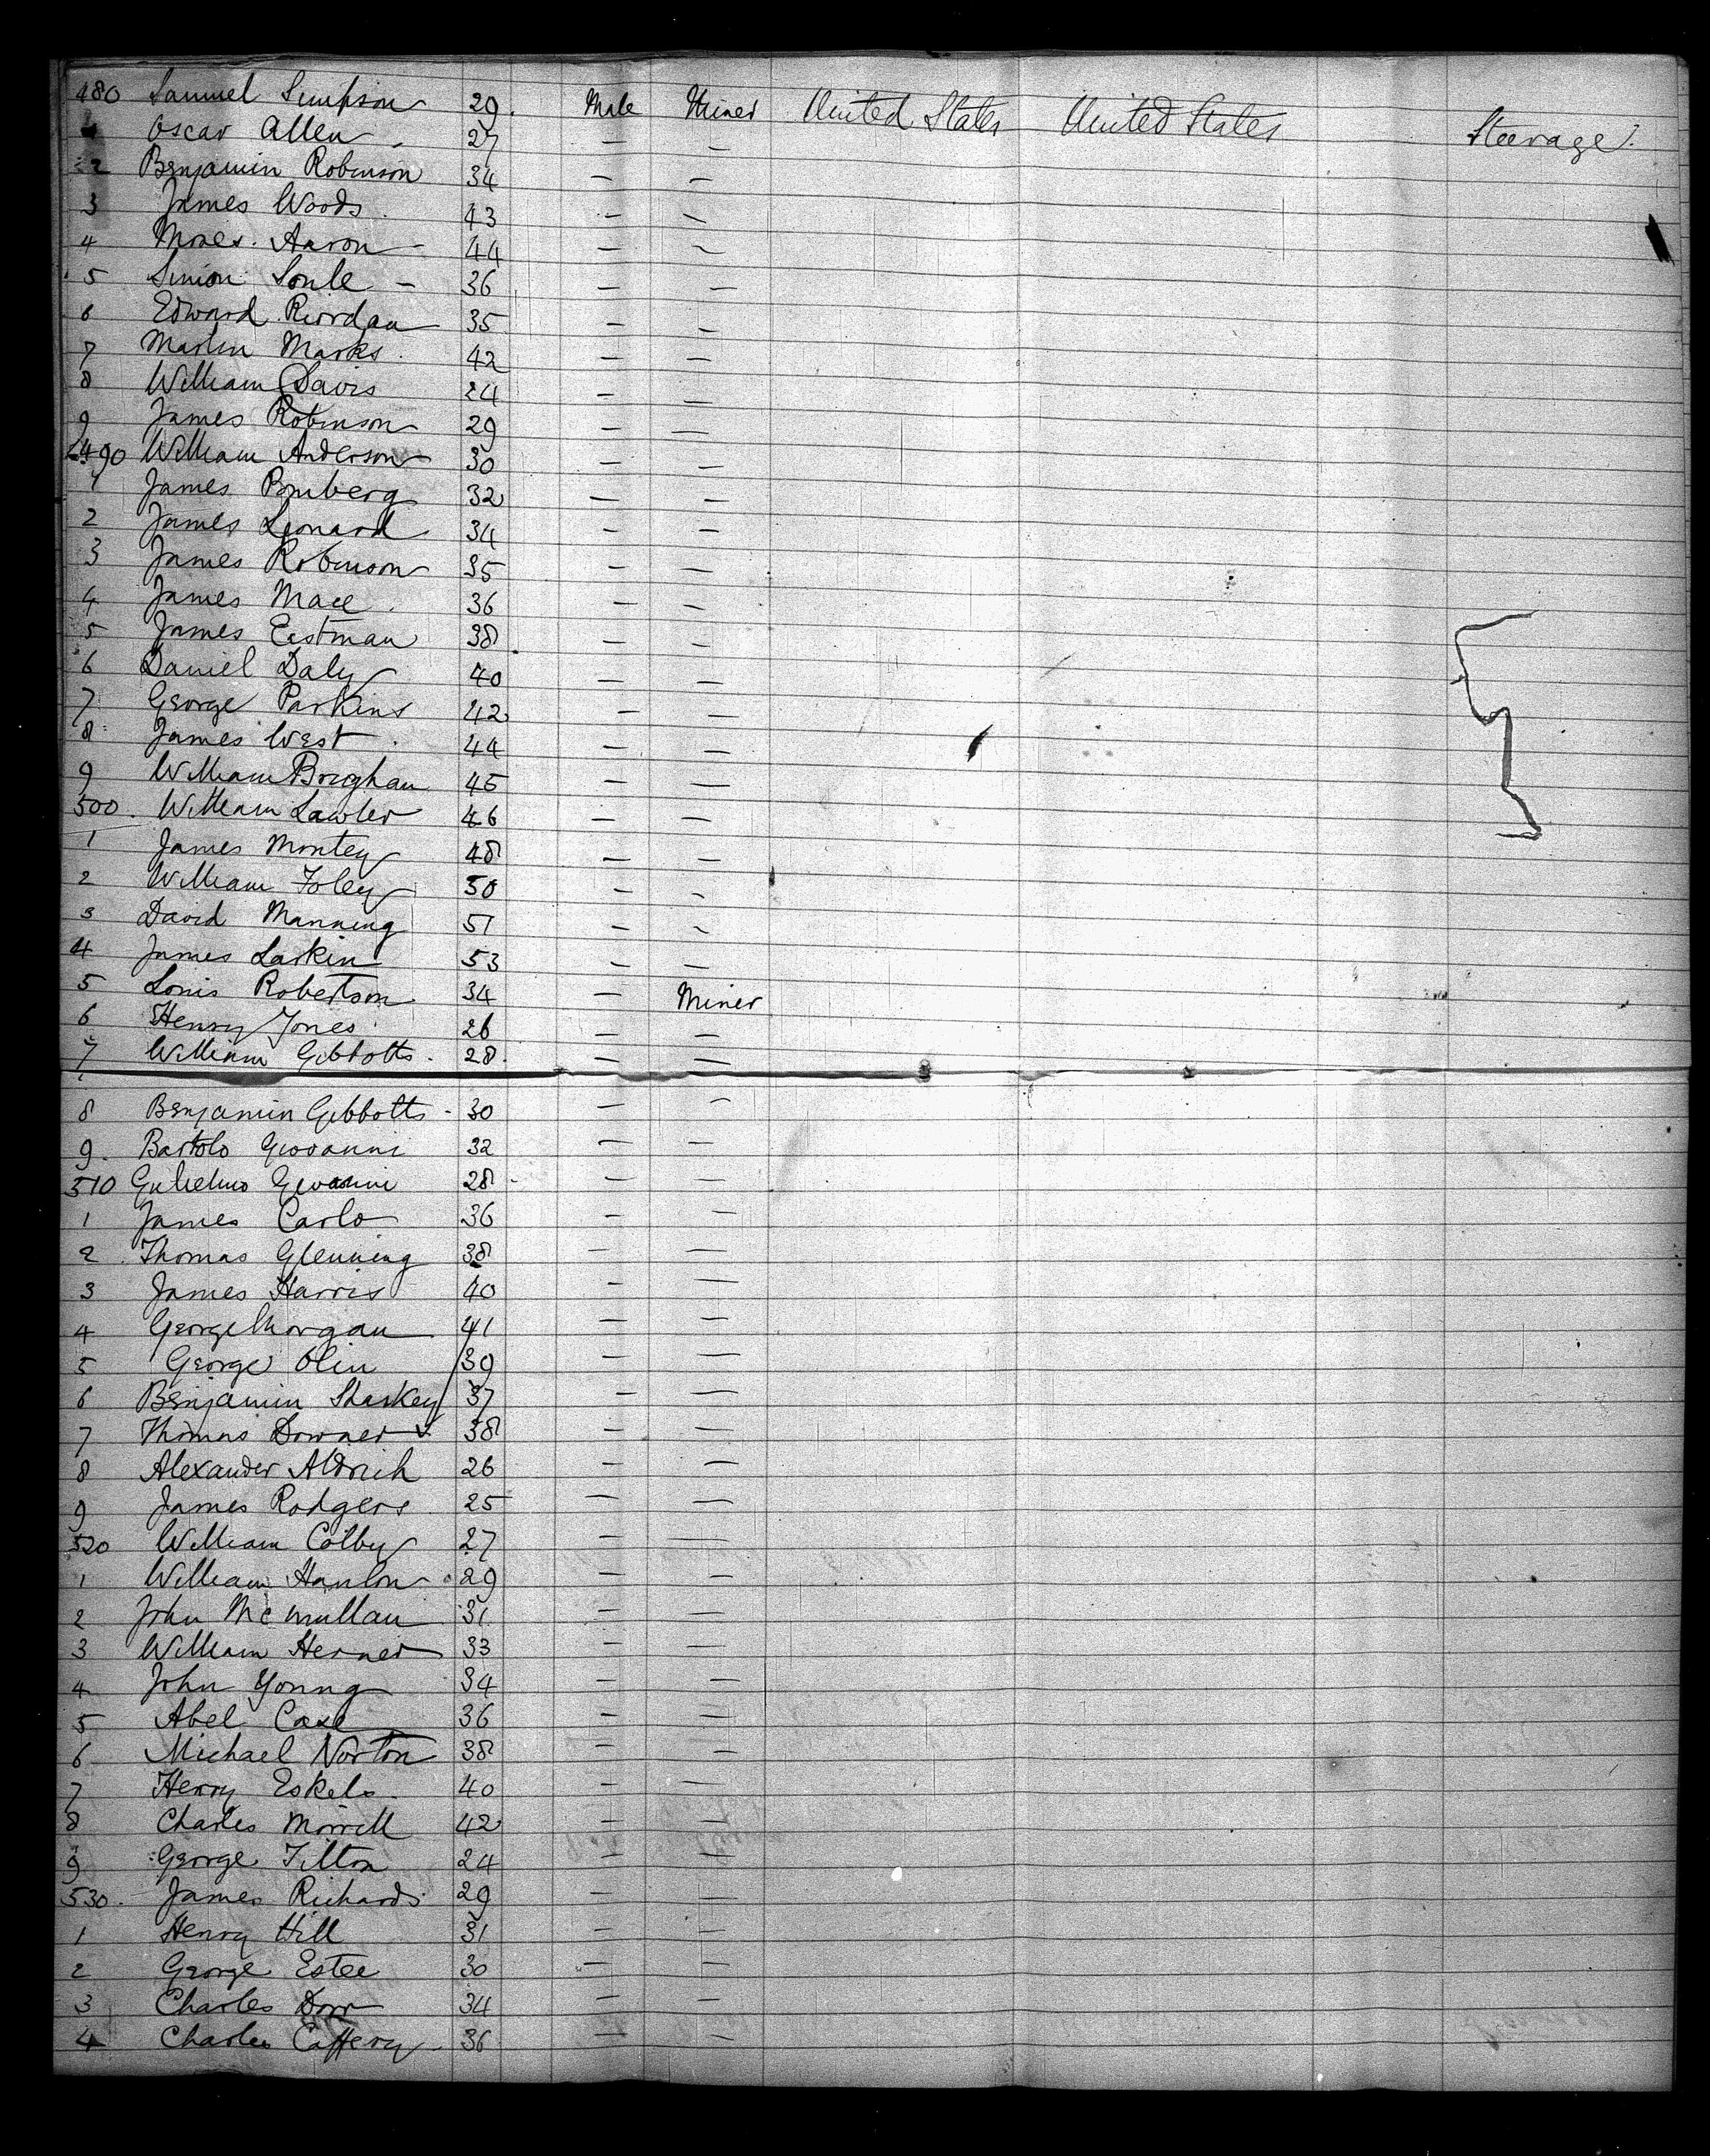 480 Samuel Simpson 29. Male Miner United States United States Steerage.
1 Oscar Allen 27 — —
2 Benjamin Robinson 34 — —
3 James Woods. 43 — —
4 Moses. Aaron 44 — —
5 Simion Soule 36 — —
6 Edward Riordan 35 — —
7 Martin Marks. 42 — —
8 William Davis 24 — —
9 James Robinson 29 — —
490 William Anderson 30 — —
1 James 32 — —
2 James Leonard 34 — —
3 James Robinson 35 — —
4 James Mace. 36 — —
5 James Eastman 38 — —
6 Daniel Daly 40 — —
7 George Parkins 42 — —
8 James West. 44 — —
9 William Brigham 45 — —
500. William Lawler 46 — —
1 James Montey 48 — —
2 William Foley 50 — —
3 David Manning 51 — —
4 James Larkin 53 — —
5 Louis Robertson 34 — Miner
6 Henry Jones 26 — —
7 William Gibbotts. 28. — —
8 Benjamin Gibbotts - 30 — —
9. Bartolo Giovanni 32 — —
510 Gulielmo Giovanni 28 — —
1 James Carlo 36 — —
2 Thomas Glenning 38 — —
3 James Harris 40 — —
4 George Morgan 41 — —
5 George Olin 39 — —
6 Benjamin Sharkey 37 — —
7 Thomas Downer 38 — —
8 Alexander Aldrich 26 — —
9 James Rodgers 25 — —
520 William Colby 27 — —
1 William Hanlon 29 — —
2 John McMullan 31 — —
3 William Herner 33 — —
4 John Young 34 — —
5 Abel Case 36 — —
6 Michael Norton 38 — —
7 Henry Eskels. 40 — —
8 Charles Morrell 42 — —
9 George Tilton 24 — —
530. James Richards 29 — —
1 Henry Hill 31 — —
2 George Estee 30 — —
3 Charles Dorr 34 — —
4 Charles Caffery 36 — —